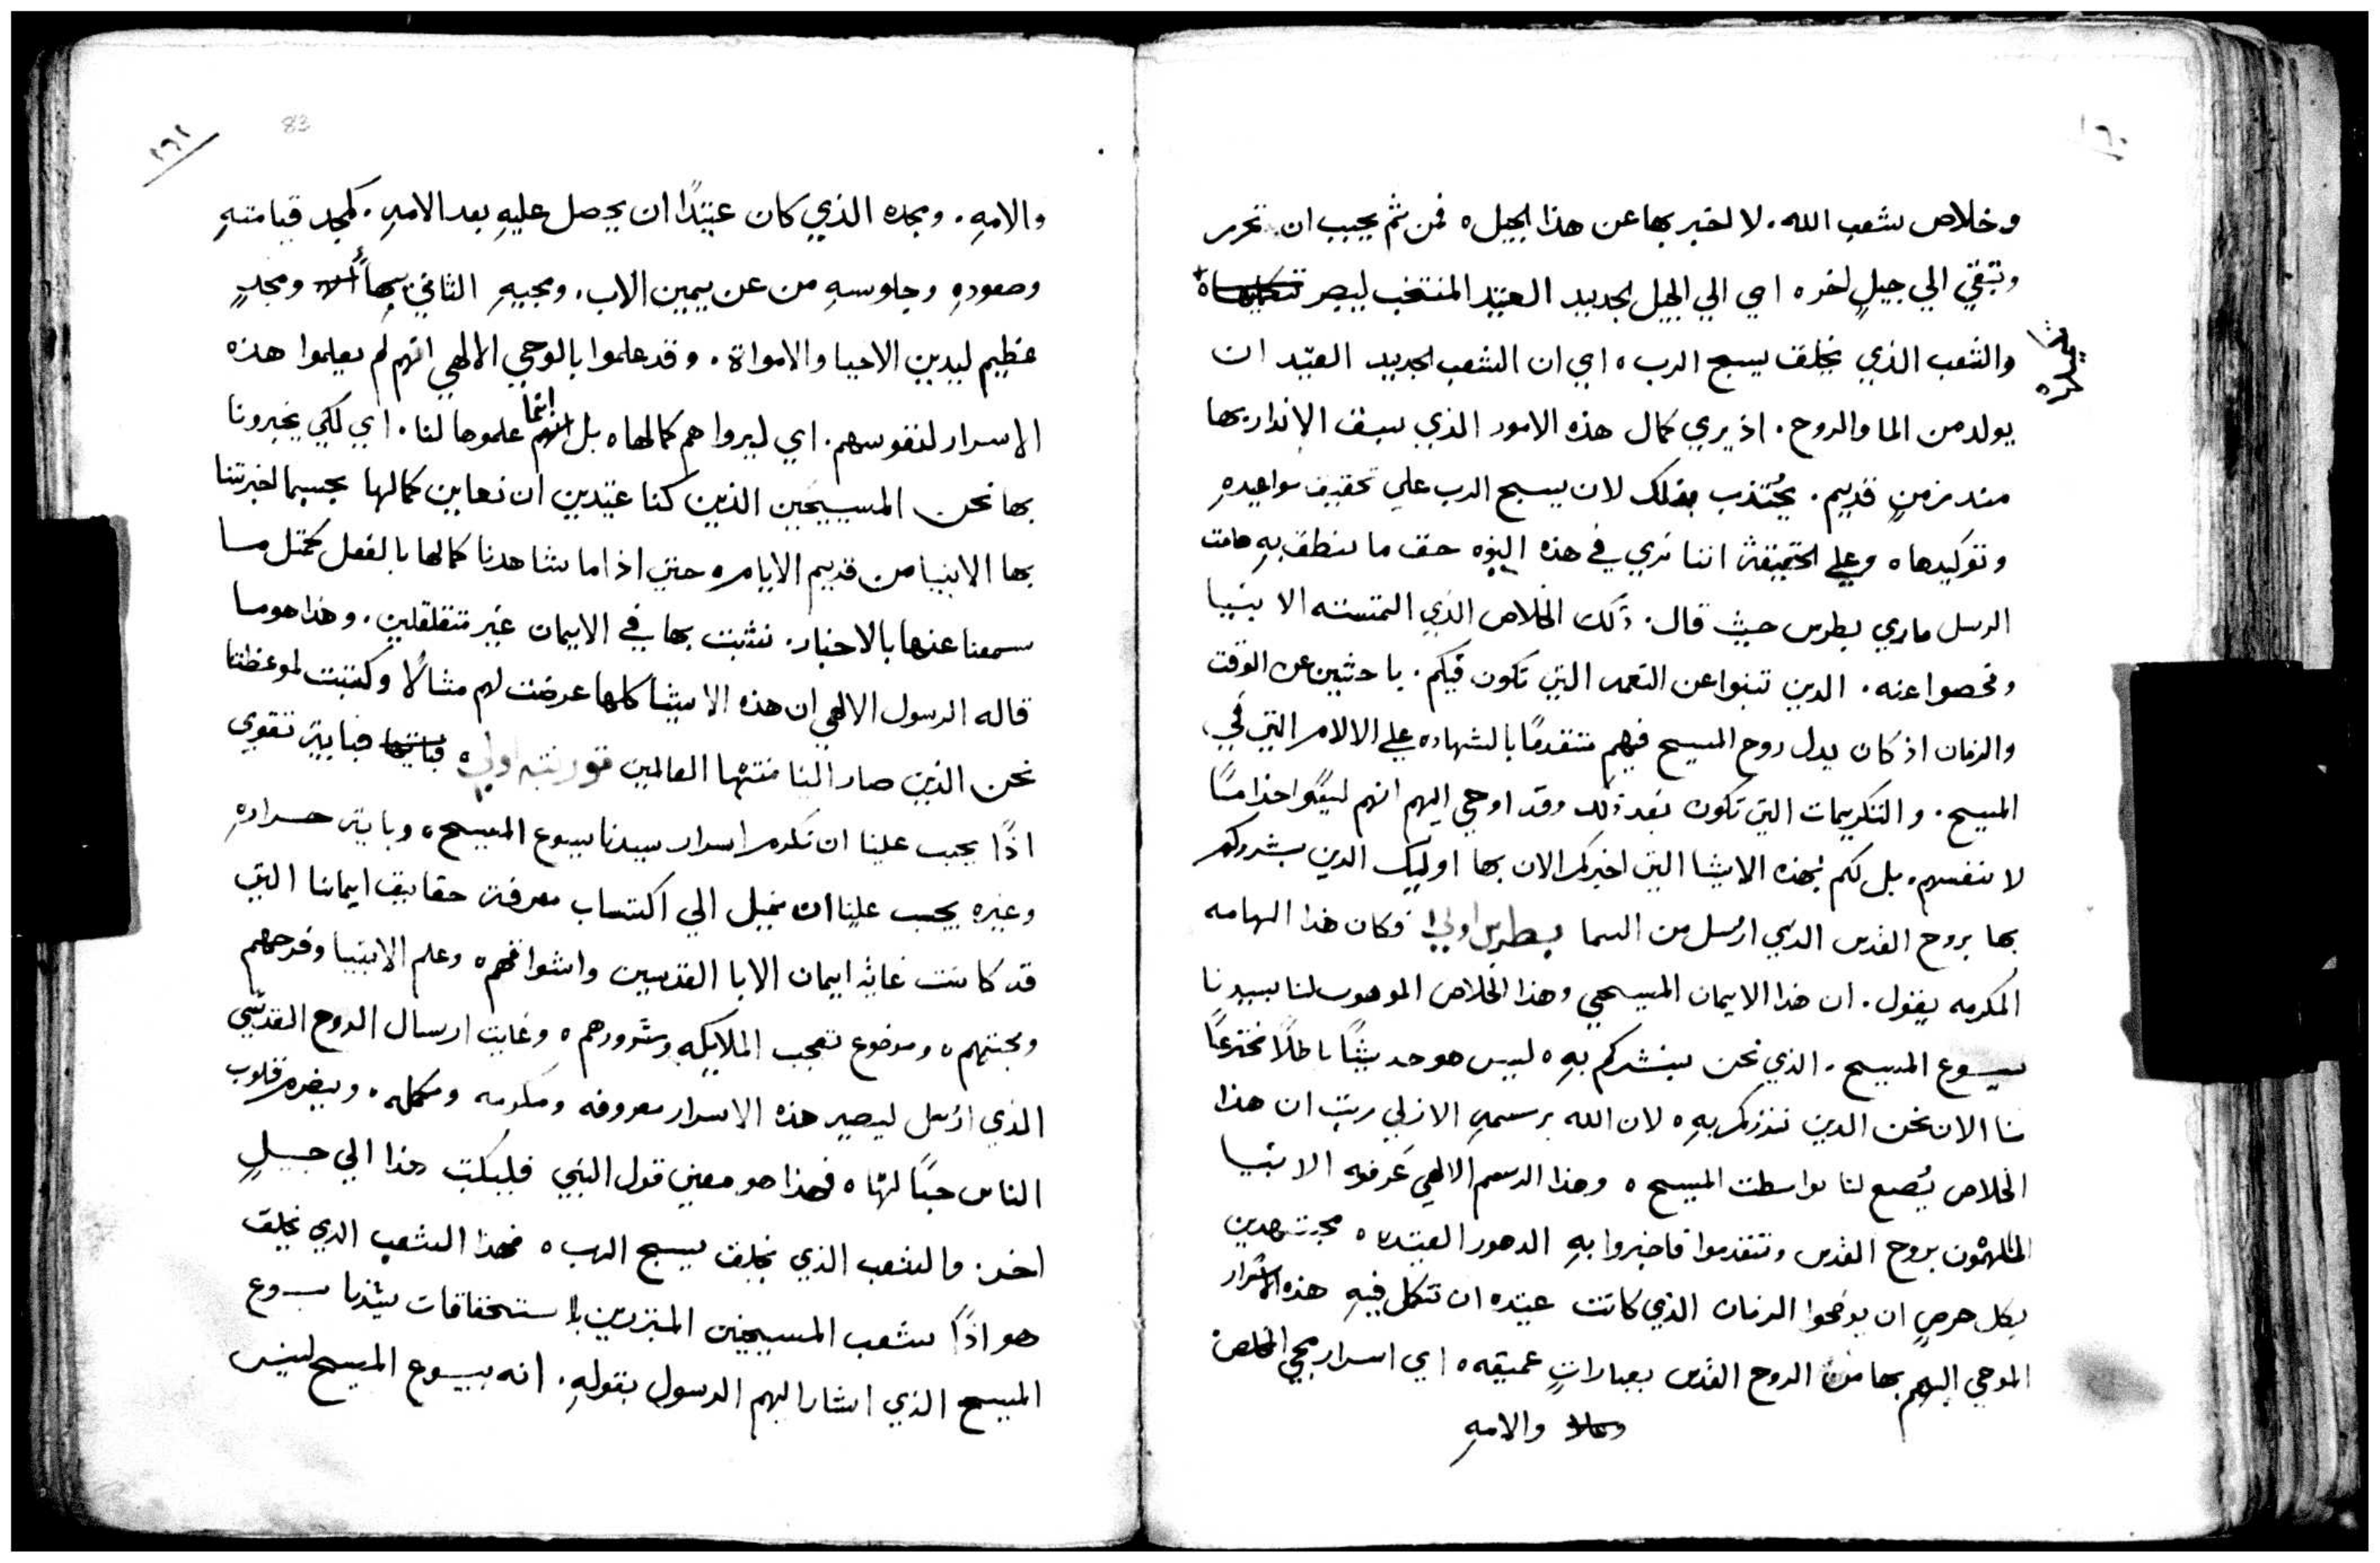 ١٦٠
وخلاص شعب الله. لا لخبر بها عن هذا الجيل ٥ فمن ثم يجبب ان تحرر
وتبقي الي جيلٍ اخر ٥ اي الي الجيل الجديد العتيد المنتخب ليبصر
والشعب الذي يخلق يسبح الرب ٥ اي ان الشعب الجديد العتيد ان
يولد من الما والروح. اذ يري كمال هذه الامور الذي سبق الانذار بها
مند زمنٍ قديم. يُجتذب بذلك لان يسبح الرب علي تحقيق مواعيدهِ
وتوكيدها ٥ وعلي الحقيقة اننا نري في هذه النبوه حق ما نطق بهِ هامت
الرسل ماري بطرس حيث قال. ذلك الخلاص الذي التمسته الانبيا
وفحصوا عنه. الدين تنبوا عن النعمه التي تكون فيكم. باحثين عن الوقت
والزمان اذ كان يدل روح المسيح فيهم متقدمًا بالشهاده علي الالام التي في
المسيح. والتكريمات التي تكون بعد ذلك وقد اوحي اليهم انهم ليسوا خدامًا
لانفسهم. بل لكم بهذه الاشيا التي اخبركم الان بها اوليك الدين بشروكم
بها بروح القدس الدي ارسل من السما بطرس اولي فكان هذا الهامه
المكرمه يقول. ان هذا الايمان المسيحي وهذا الخلاص الموهوب لنا بسيدنا
يسوع المسيح. الذي نحن نبشركم بهِ ٥ ليس هو حديثًا باطلًا مخترعًا
منا الان نحن الدين ننذركم بهِ ٥ لان الله برسمهِ الازلي رتب ان هذا
الخلاص يُصنع لنا بواسطت المسيح ٥ وهذا الرسم الالهي عَرفوه الانبيا
المُلهمُون بروح القدس وتقدموا فاخبروا بهِ الدهور العتيده ٥ مجتهدين
بكل حرصٍ ان يوضحوا الزمان الذي كانت عتيده ان تتكمل فيهِ هذه الاسرار
الموحي اليهم بها من الروح القدس بعباراتٍ عميقه ٥ اي اسرار مجي المخلص
والامهِ
١٦١
83
والامهِ. ومجده الذي كان عتيدًا ان يحصل عليهِ بعد الامهِ. كمجد قيامتهِ
وصعودهِ وجلوسهِ من عن يمين الاب. ومجيهِ الثاني ومجدٍ
عظيم ليدين الاحيا والامواة. وقد علموا بالوحي الالهي انهم لم يعلموا هذه
الاسرار لنفوسهم. اي ليروا هم كمالها ٥ بل انما علموها لنا. اي لكي يخبرونا
بها نحن المسيحيين الذين كنا عتيدين ان نعاين كمالها بحسبما اخبرتنا
بها الانبيا من قديم الايام ٥ حتي اذا ما شاهدنا كمالها بالفعل كمثل ما
سمعنا عنها بالاخبار. نثبت بها في الايمان غير متقلقلين. وهذا هو ما
قاله الرسول الالهي ان هذه الاشيا كلها عرضت لهم مثالًا وكتبت لموعظتنا
نحن الذين صار الينا منتها العالمين قورنتيه اولي ٥ فباية تقوي
اذًا يجب علينا ان نكرم اسرار سيدنا يسوع المسيح ٥ وباية حراره
وغيره يجب علينا ان نميل الي اكتساب معرفة حقايق ايماننا التي
قد كانت غاية ايمان الابا القدسين واشواقهم ٥ وعلم الانبيا وفرحهم
ومحبتهم ٥ وموضوع تعجب الملايكه وسرورهم ٥ وغايت ارسال الروح القدسي
الذي ارسل ليصير هذه الاسرار معروفه ومكرمه ومكمله. ويضرم قلوب
الناس حبًا لها ٥ فهذا هو معني قول النبي فليكتب هذا الي جيلٍ
اخر. والشعب الذي يخلق يسبح الرب ٥ فهذا الشعب الدي يخلق
هو اذًا شعب المسيحيين المتبررين باستحقاقات سيدنا يسوع
المسيح الذي اشار اليهم الرسول بقولهِ. انه بيسوع المسيح ليس